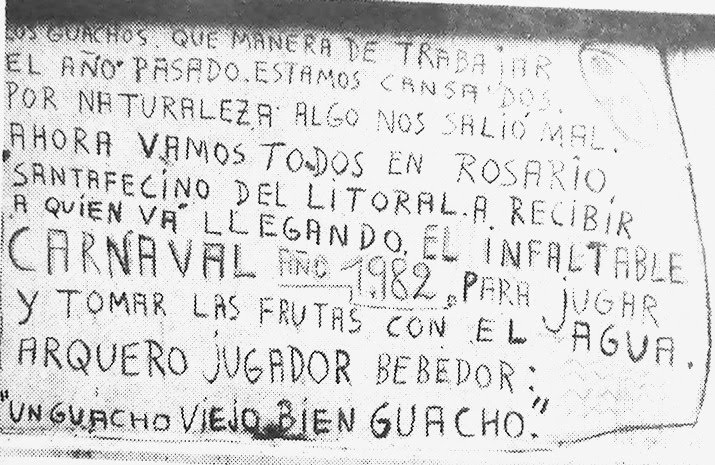 LOS GUACHOS. QUE MANERA DE TRABAJAR
EL AÑO PASADO. ESTAMOS CANSADOS.
POR NATURALEZA ALGO NOS SALIÓ MAL.
AHORA VAMOS TODOS EN ROSARIO,
"SANTAFECINO DEL LITORAL. A RECIBIR
A QUIEN VA" LLEGANDO. EL INFALTABLE
CARNAVAL AÑO 1.982. PARA JUGAR
Y TOMAR LAS FRUTAS CON EL AGUA.
ARQUERO JUGADOR BEBEDOR:
"UN GUACHO VIEJO BIEN GUACHO."